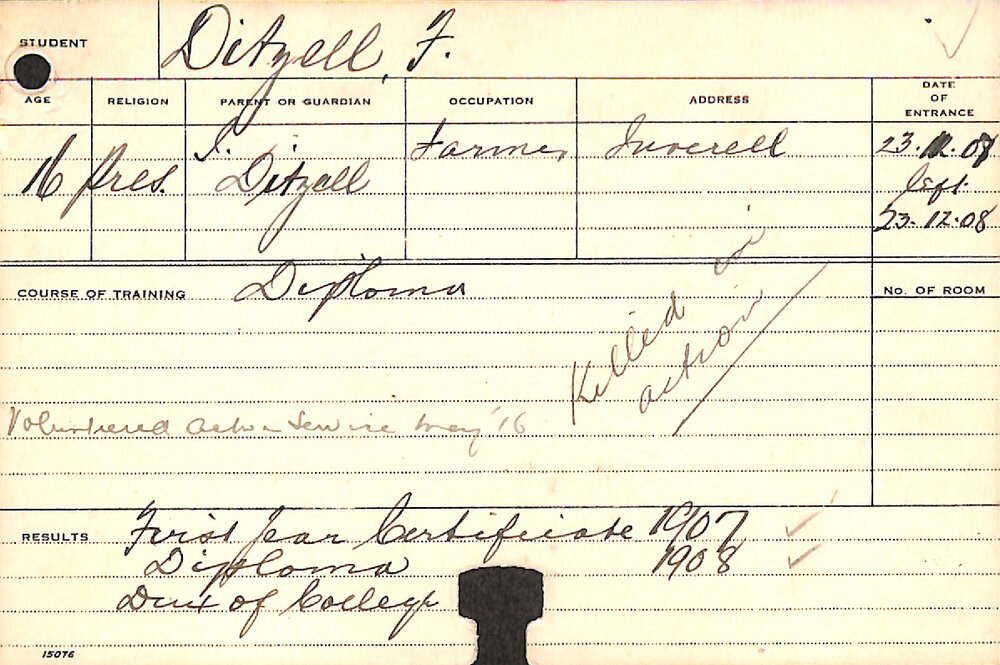 STUDENT Ditzell, F.
AGE RELIGION PARENT OR GUARDIAN OCCUPATION ADDRESS DATE OF ENTRANCE
16 Pres. J. Ditzell Farmer Inverell
left
23.12.08
COURSE OF TRAINING Diploma
No. OF ROOM
Killed in action
Volunteered active Service May '16
RESULTS First Year Certificate 1907
Diploma 1908
Dux of College
15076